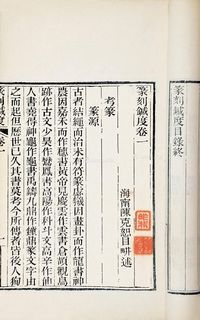 篆刻鍼度目錄終
篆刻鍼度卷一
海南陳克恕目畊述
考篆
篆源
古者結繩而治未有符篆虙犧因畫卦而作龍書神
農因嘉禾而作穗書黃帝見慶雲作雲書倉頡觀鳥
跡作古文少昊作鸞鳳書高陽作科斗文高辛作仙
人書堯得神龜作龜書禹鑄九鼎作鐘鼎文字由
之而起但歷世已久其書莫考今所傳者皆後人狥
篆刻鍼度 卷一